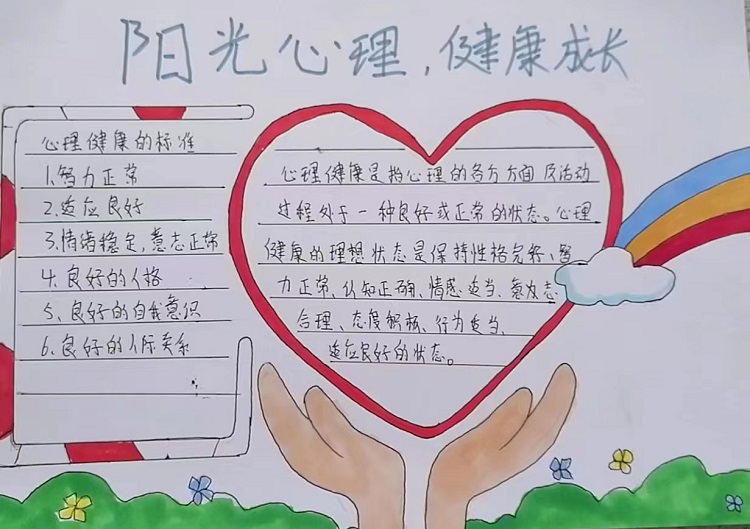 阳光心理，健康成长
心理健康的标准
1.智力正常
2.适应良好
3.情绪稳定，意志正常
4.良好的人格
5、良好的自我意识
6.良好的人际关系
心理健康是指心理的各方方面及活动
过程处于一种良好或正常的状态。心理
健康的理想状态是保持性格完好、智
力正常、认知正确、情感适当、意志
合理、态度积极、行为适当、
适应良好的状态。